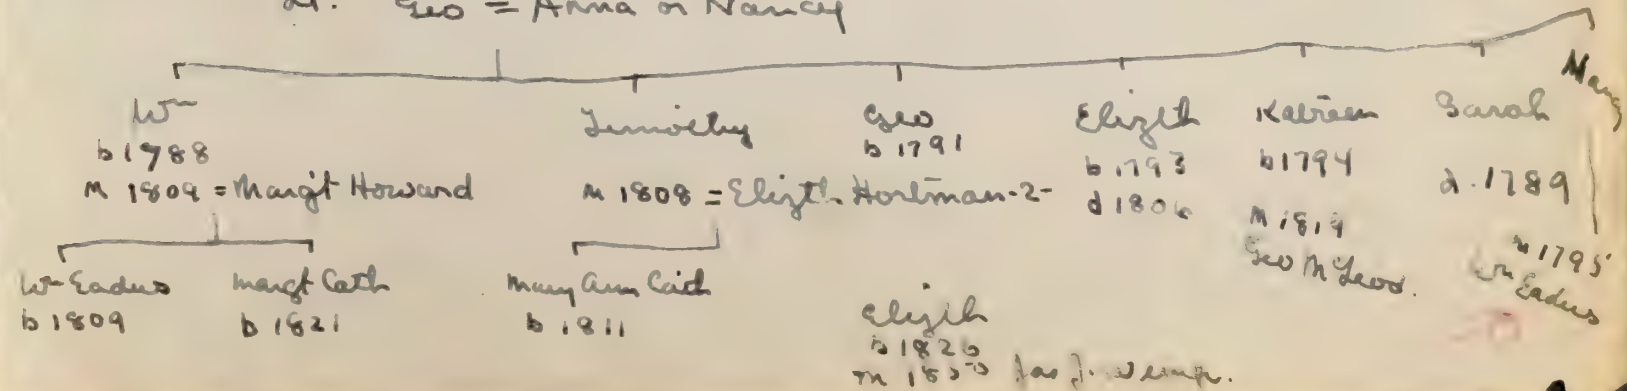 Geo = Anna or Nancy
Wm
b 1788
m 1809 = Margt Howard
Timothy
m 1808 = Elizth Hortman-2-
Geo
b 1791
Elizth
b 1793
d 1806
b 1794
m 1819
Geo McLeod.
Sarah
d. 1789
Mary
m 1795
Wm Eadus
Wm Eadus
b 1809
Margt Cath
b 1821
Mary Ann Cath
b 1811
Elizth
b 1826
m